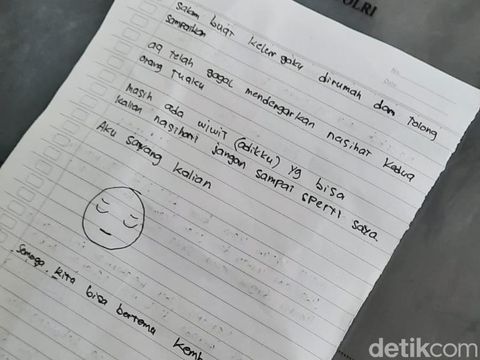 OLRI
No
Date
Salam buat keluargaku dirumah dan tolong
Sampaikan
aq telah gagal mendengarkan nasihat kedua
orang Tuaku
masih ada wiwit (adikku) yg bisa
kalian nasihati jangan sampai sperti saya.
Aku sayang kalian
Semoga kita bisa bertemu kemb
detikcom